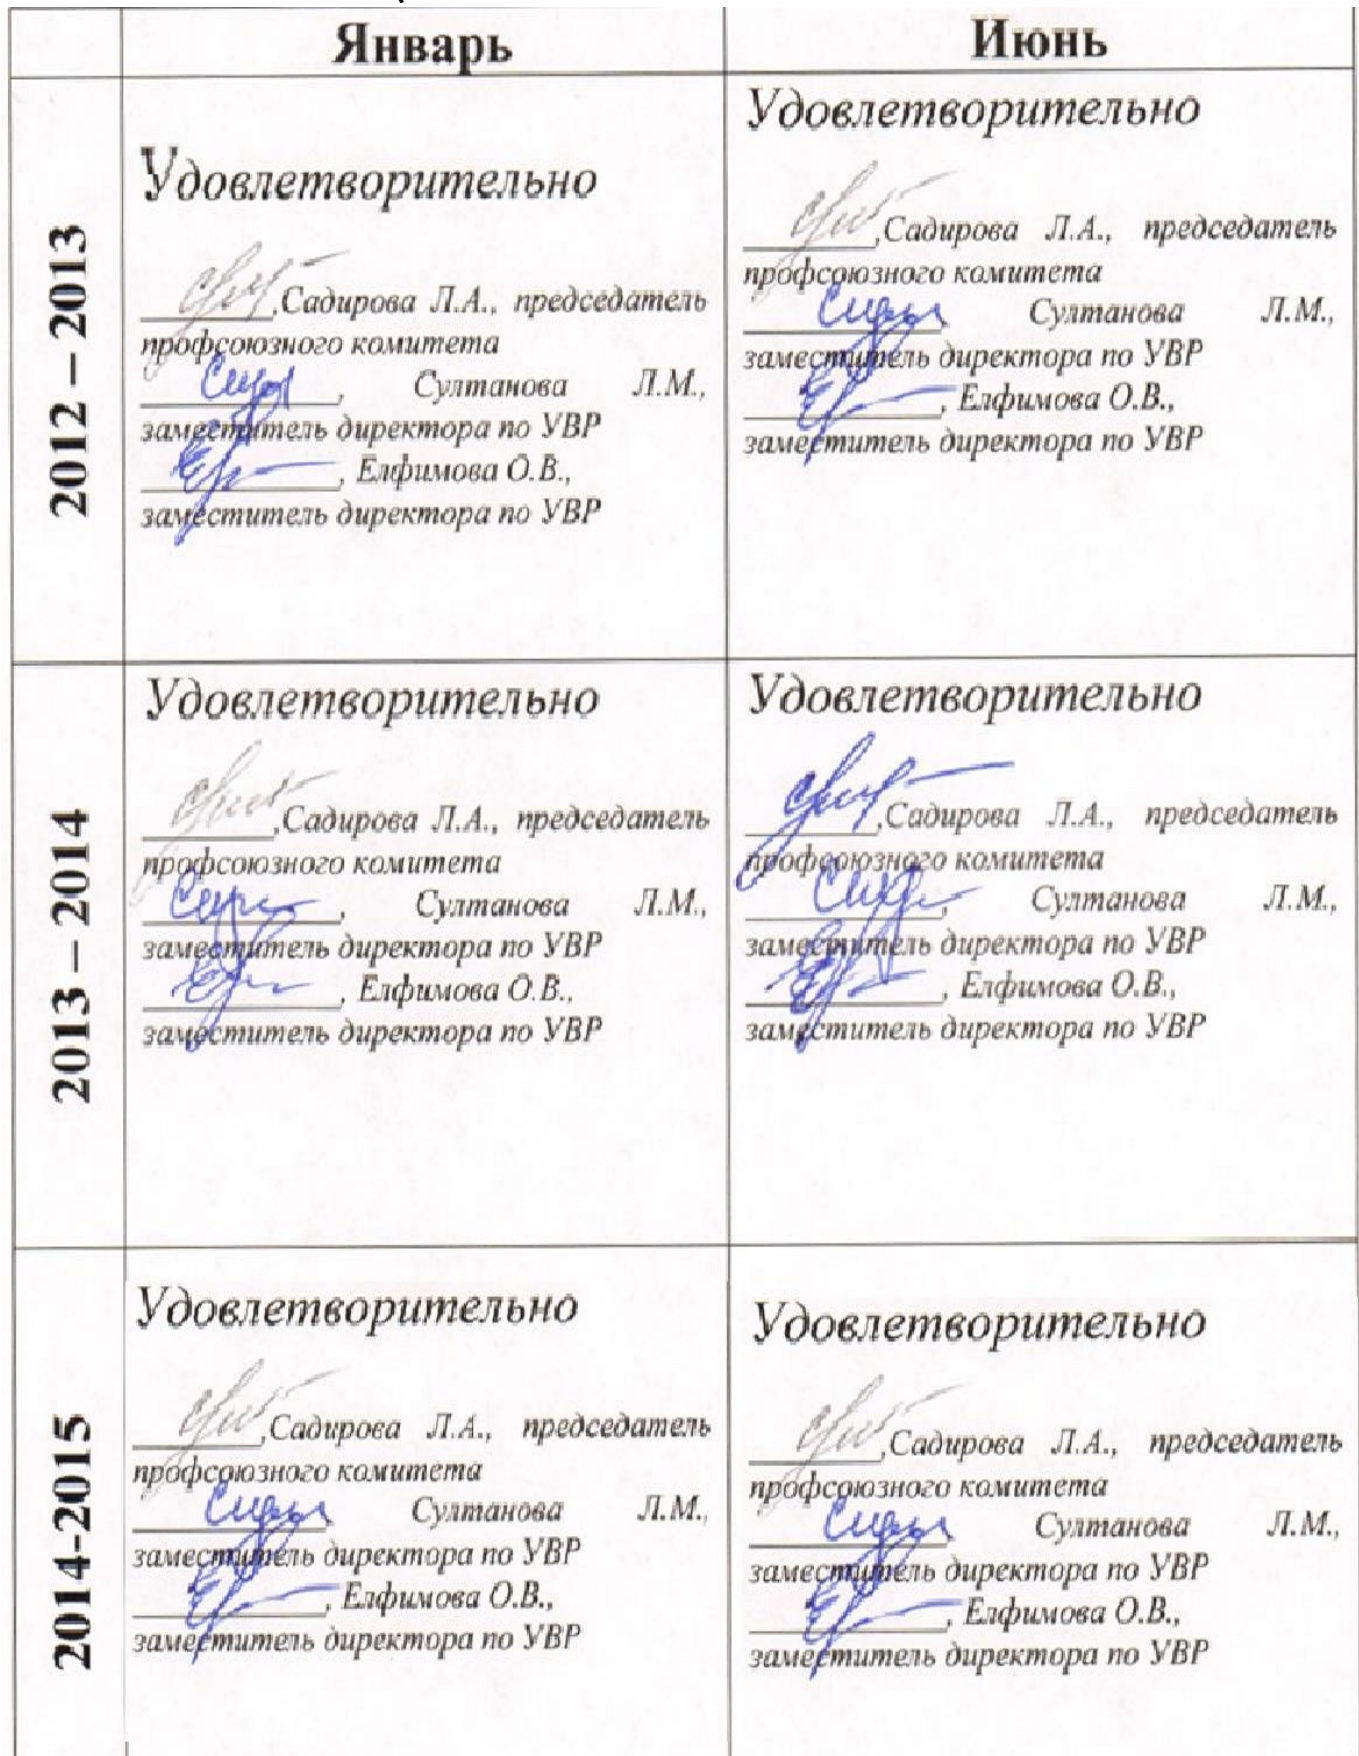 Январь
Июнь
2012 – 2013
Удовлетворительно
________,Садирова Л.А., председатель
профсоюзного комитета
____________, Султанова Л.М.,
заместитель директора по УВР
____________, Елфимова О.В.,
заместитель директора по УВР
Удовлетворительно
________,Садирова Л.А., председатель
профсоюзного комитета
____________, Султанова Л.М.,
заместитель директора по УВР
____________, Елфимова О.В.,
заместитель директора по УВР
2013 – 2014
Удовлетворительно
________,Садирова Л.А., председатель
профсоюзного комитета
____________, Султанова Л.М.,
заместитель директора по УВР
____________, Елфимова О.В.,
заместитель директора по УВР
Удовлетворительно
________,Садирова Л.А., председатель
профсоюзного комитета
____________, Султанова Л.М.,
заместитель директора по УВР
____________, Елфимова О.В.,
заместитель директора по УВР
2014-2015
Удовлетворительно
________,Садирова Л.А., председатель
профсоюзного комитета
____________, Султанова Л.М.,
заместитель директора по УВР
____________, Елфимова О.В.,
заместитель директора по УВР
Удовлетворительно
________,Садирова Л.А., председатель
профсоюзного комитета
____________, Султанова Л.М.,
заместитель директора по УВР
____________, Елфимова О.В.,
заместитель директора по УВР